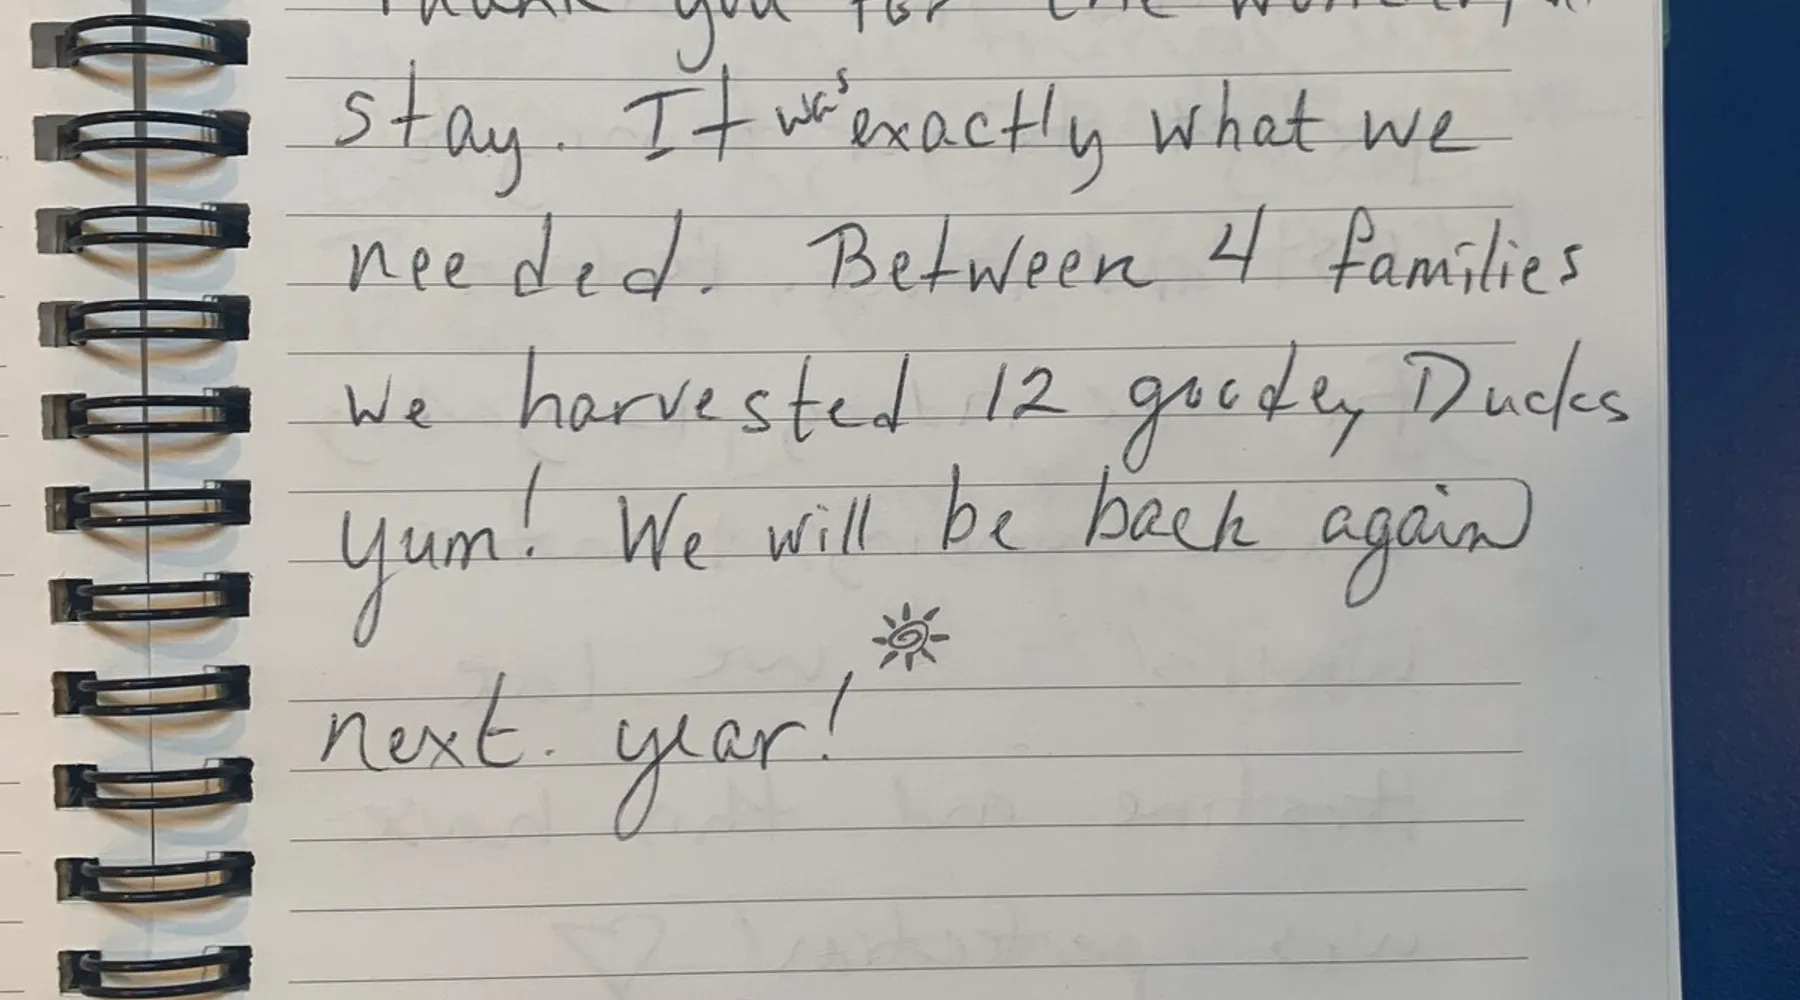 Thank you for the wonderful
stay. It was exactly what we
needed. Between 4 families
we harvested 12 goodey Ducks
yum! We will be back again
next. year!